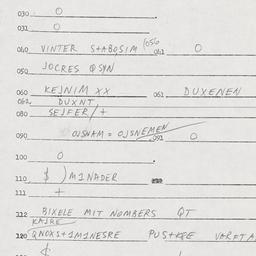 030 O
031 O
040 VINTER S+ABQSIM /056 041 O
050 JOCRES QSYN
060 KEJNIM XX 061 DUXENEN
062 DUXNT
080 SEJFER/+
090 OJSNAM = OJSNEMEN 091 O
100 O
110 $ ) MINADER
111 +
112 BIXELE MIT NOMBERS QT
KAJRE
120 QNOXS+1M1NESRE PUS+KQE VARFTA